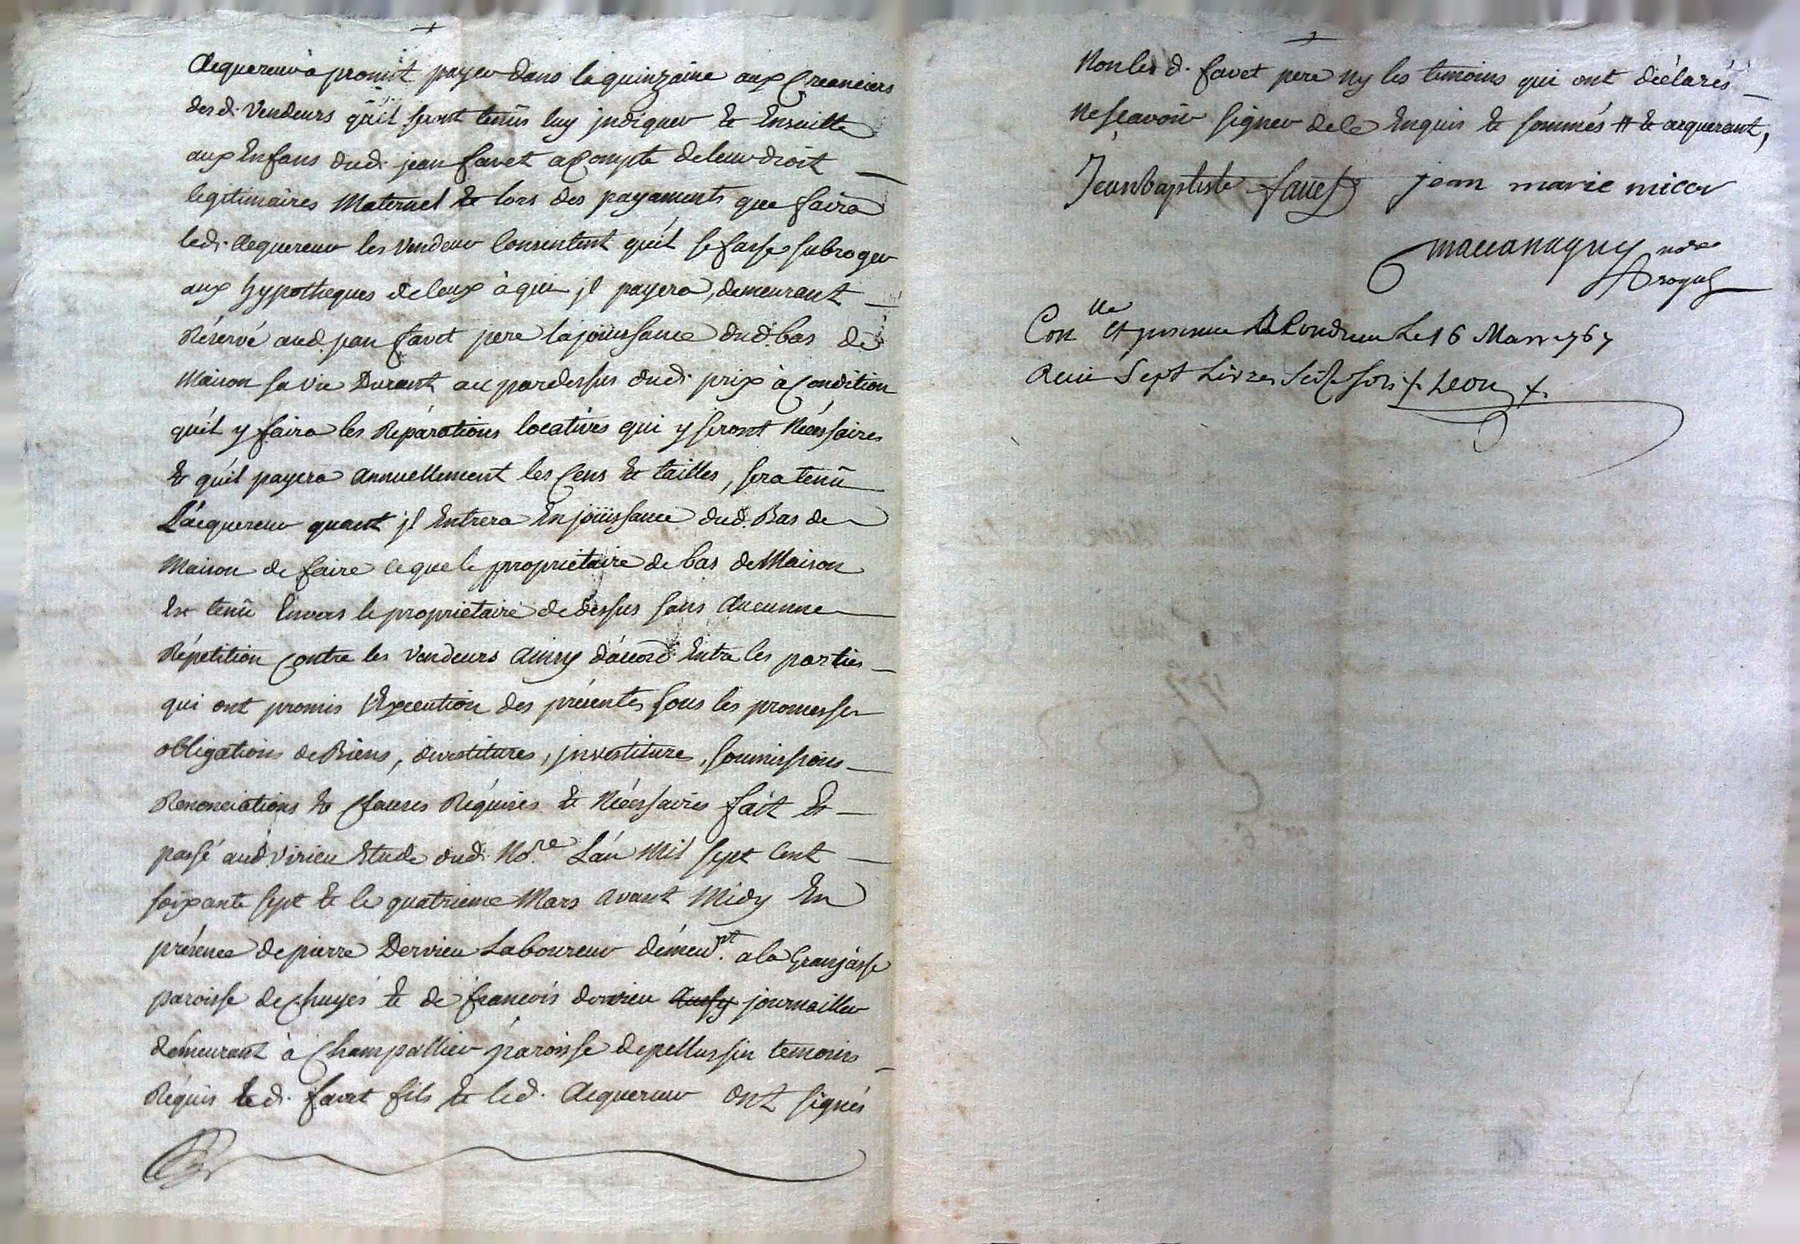 acquereur à promit payer dans la quinzaine aux Creanciers
desd. Vendeurs qu'il seront tenus luy jndiquer & Ensuitte
aux Enfans dud. jean favet acompte de leur droit
legitimaires Maternel & lors des payaments que faira
led. acquereur les vendeur Consentent qu'il se fasse subroger
aux hypotheques de Ceux à qui jl payera, demeurant
Réservé aud. jean favet pere la joüissance dud. bas de
Maison sa vie Durant au pardessus dud. prix à Condition
qu'il y faira les Réparations locatives qui y seront Nécéssaires
& qu'il payera annuellement les Cens & tailles, sera tenû
L'acquereur quant jl Entrera En joüissance dud. Bas de
Maison de faire ce que le propriétaire de bas de Maison
Est tenû Envers le propriétaire de dessus sans aucunne
Répétition Contre les vendeurs ainsy d'acord Entre les parties
qui ont promis l'Exécution des présentes sous les promesses
obligations de Biens, devestitures, jnvestiture, soumissions
Renonciations & Clauses Réquises & Nécéssaires fait &
passé aud. virieu Etude dud. No.re L'an Mil sept Cent
soixante sept & le quatrieme Mars avant Midy En
présence de pierre Dervieu Laboureur démeur.nt a la Granjasse
paroisse de Chuyés & de francois dervieu aussy journaillier
démeurant à Champallier paroisse de pellussin temoins
Réquis led. favet fils & led. acquereur ont signés
Non led. favet pere ny les temoins qui ont déclarés
Ne sçavoir signer de ce Enquis & sommés # & acquerant,
Jean baptiste favet jean marie micer
no.re
Royal
Con.lle Et A Condrieu Le 16 Mars 1767
Recu Sept Livres Seise sols Leon